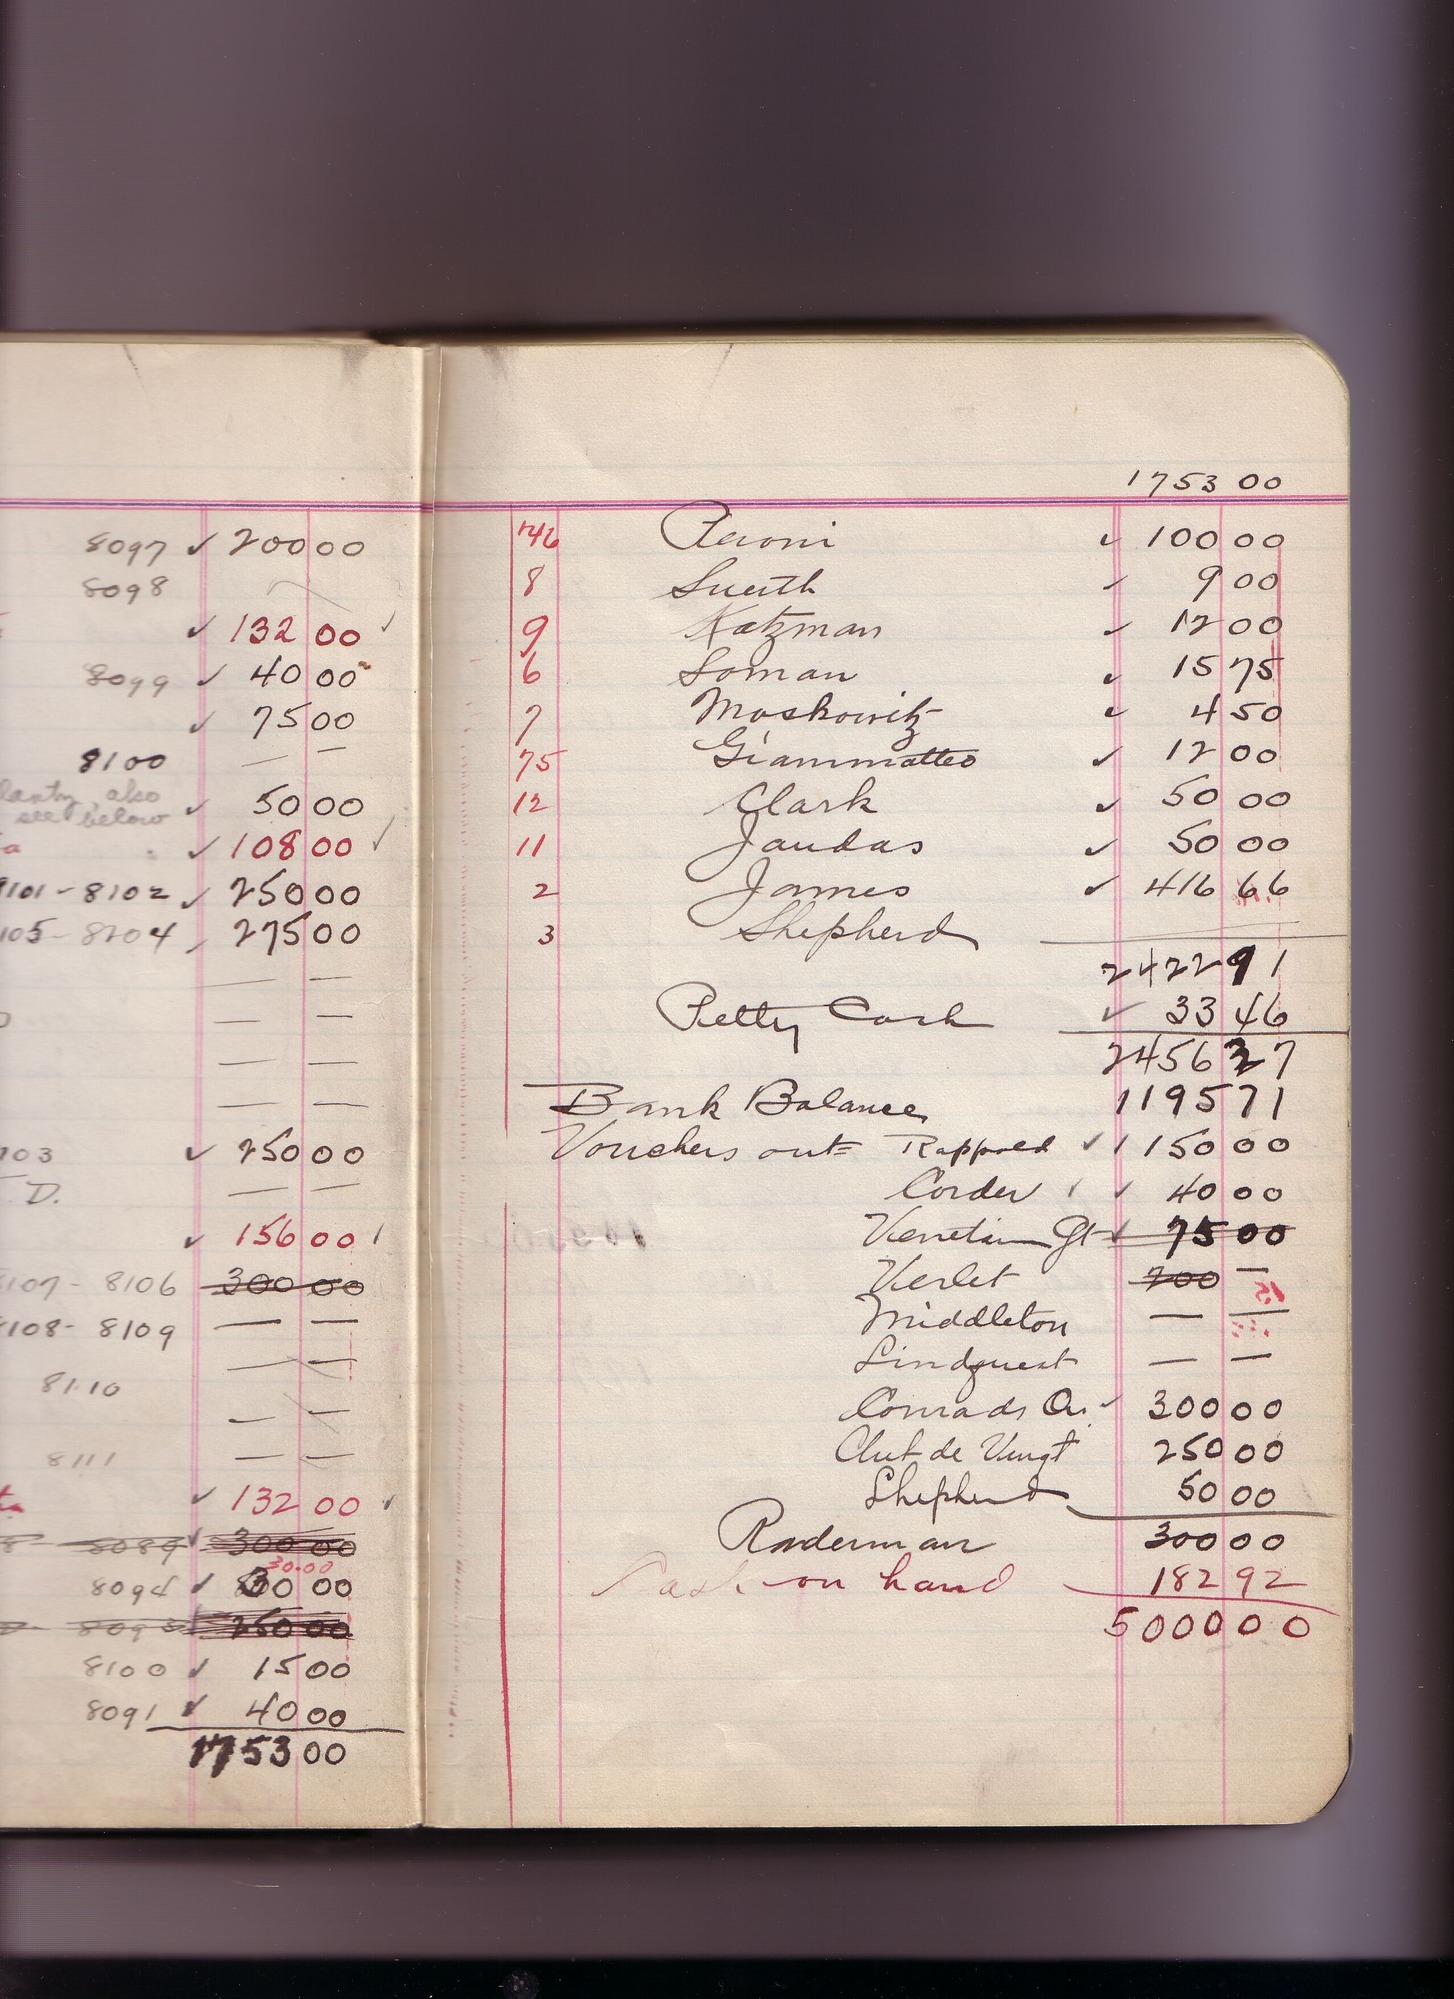 8097 ✓ 200 00
8098
✓ 132 00 ✓
8099 ✓ 40 00
✓ 75 00
8100 — —
also
see below ✓ 50 00
a ✓ 108 00 ✓
8101 - 8102 ✓ 250 00
105 - 8204 ✓ 275 00
— —
— —
— —
— —
703 ✓ 250 00
D. — —
✓ 156 00 ✓
8107 - 8106 300 00
8108 - 8109 — —
— —
8110
— —
8111 — —
✓ 132 00 ✓
8089 ✓ 300 00
30.00
8094 ✓ 30 00
250 00
8100 ✓ 15 00
8091 ✓ 40 00
1753 00
1753 00
746 Peroni ✓ 100 00
8 Sueth ✓ 9 00
9 Katzman ✓ 12 00
6 Soman ✓ 15 75
7 Moskowitz ✓ 4 50
75 Giammatteo ✓ 12 00
12 Clark ✓ 50 00
11 Jaudas ✓ 50 00
2 James ✓ 416 66
3 Shepherd
2422 91
Petty Cash ✓ 33 46
2456 37
Bank Balance 1195 71
Vouchers out = Rappold ✓ 150 00
Corder ✓ ✓ 40 00
Venetian Gt ✓ 75 00
Verlet 200 —
Middleton — —
Lindquest — —
Conrads Or. ✓ 300 00
Club de Vingt 250 00
Shepherd 50 00
Raderman 300 00
Cash on hand 182 92
5000 00